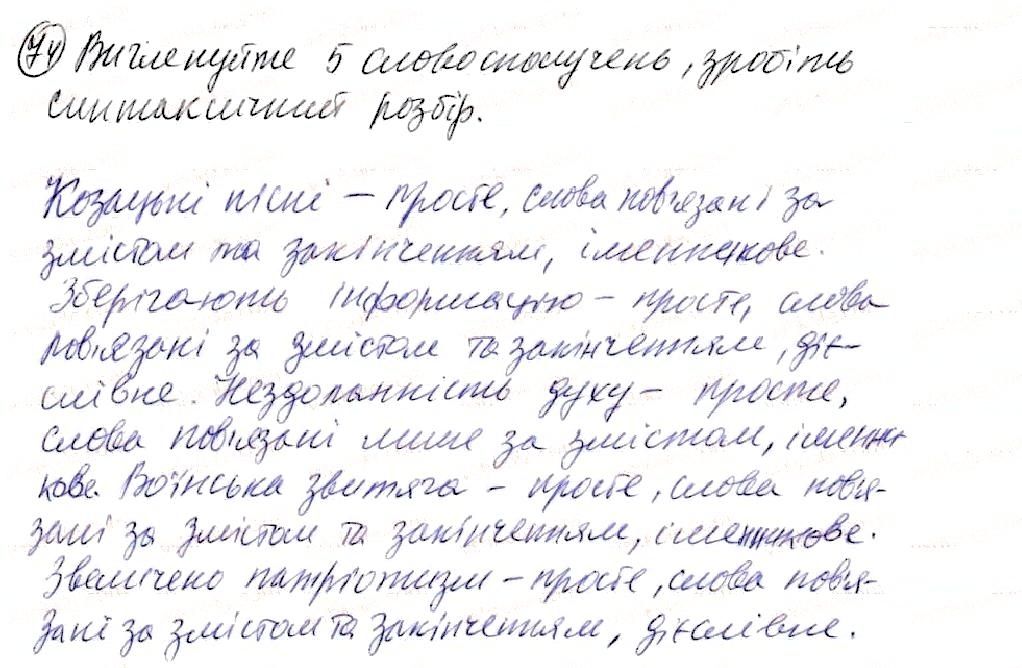 74 Вичленуйте 5 словосполучень, зробіть
синтаксичний розбір.
Козацькі пісні – просте, слова пов'язані за
змістом та закінченням, іменникове.
Зберігають інформацію – просте, слова
пов'язані за змістом та закінченням, діє-
слівне. Нездоланність духу – просте,
слова пов'язані лише за змістом, іменни-
кове. Воїнська звитяга – просте, слова пов'я-
зані за змістом та закінченням, іменникове.
Звеличено патріотизм – просте, слова пов'я-
зані за змістом та закінченням, дієслівне.